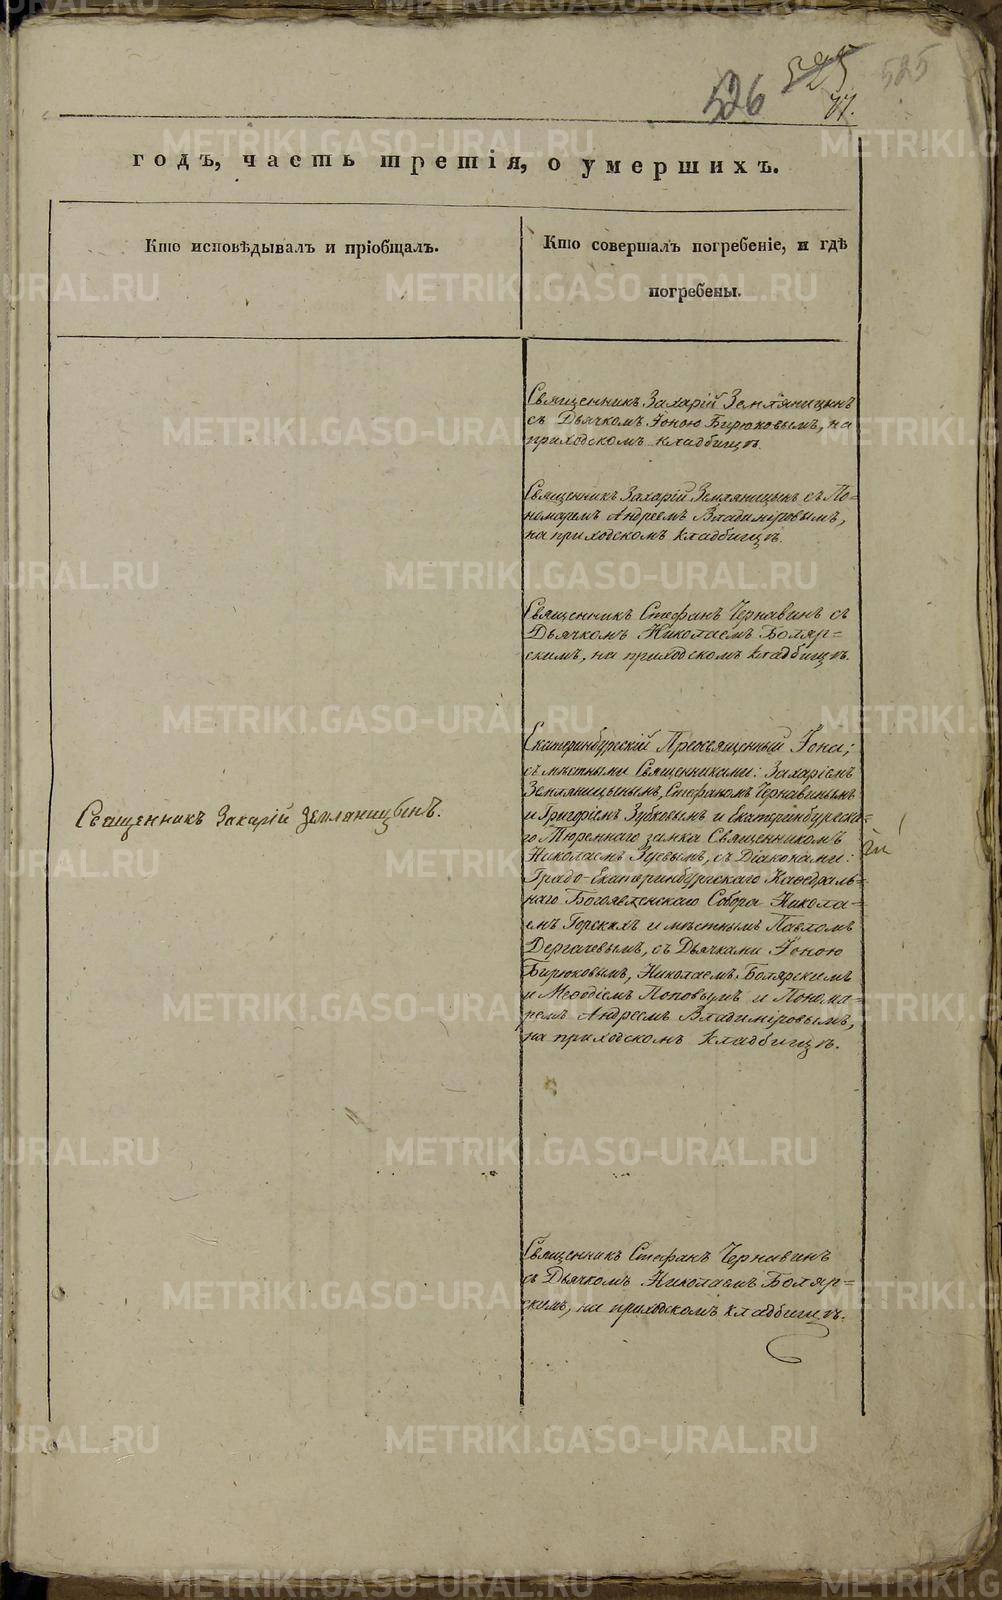 525
526
525
77.
годъ, часть третія, о умершихъ.
Кто исповѣдывалъ и пріобщалъ.
Кто совершалъ погребеніе, и гдѣ
погребены.
Священникъ Захарій Земляницынъ
съ Дьячкомъ Іоною Бирюковымъ, на
приходскомъ кладбищѣ.
Священникъ Захарій Земляницынъ съ По=
номаремъ Андреемъ Владиміровымъ,
на приходскомъ кладбищѣ.
Священникъ Стефанъ Чернавинъ съ
Дьячкомъ Николаемъ Боляр=
скимъ, на приходскомъ кладбищѣ.
Священникъ Захарій Земляницынъ.
Екатеринбургскій Преосвященный Іона;
съ мѣстными Священниками: Захаріемъ
Земляницынымъ, Стефаномъ Чернавинымъ
и Григоріемъ Зубковымъ и Екатеринбургска=
го Тюремнаго замка Священникомъ
Николаемъ, съ Діаконами:
Градо-Екатеринбургскаго Кафедраль=
наго Богоявленскаго Собора Никола=
емъ Горскихъ и мѣстнымъ Павломъ
Дергачевымъ, съ Дьячками Іоною
Бирюковымъ, Николаемъ Болярскимъ
и Меѳодіемъ Поповымъ и Понома=
ремъ Андреемъ Владиміровымъ,
на приходскомъ кладбищѣ.
Священникъ Стефанъ Чернавинъ
съ Дьячкомъ Николаемъ Боляр=
скимъ, на приходскомъ кладбищѣ.
METRIKI.GASO-URAL.RU